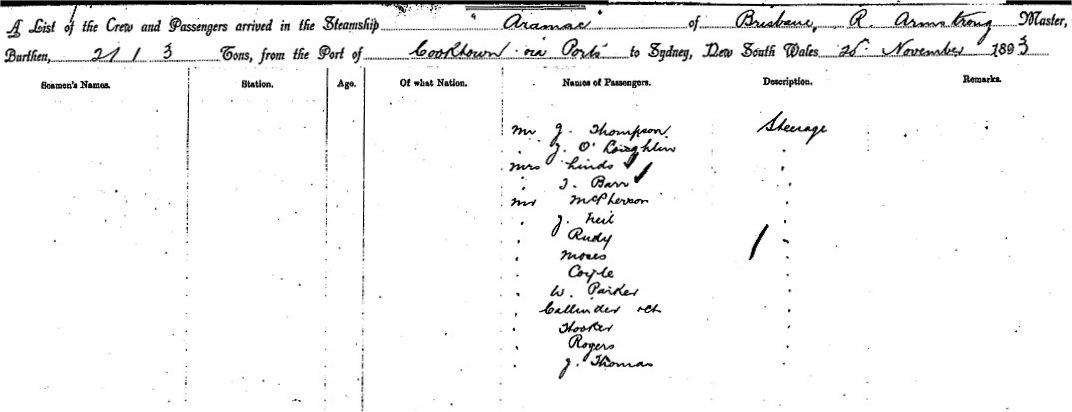 A List of the Crew and Passengers arrived in the Steamship "Aramac" of Brisbane, R. Armstrong Master,
Burthen, 2113 Tons, from the Port of Cooktown via Ports to Sydney, New South Wales 25 November 1893
Seamen's Names. Station. Age. Of what Nation. Names of Passengers. Description. Remarks.
Mr J. Thompson Steerage
" J. O'Loughlin "
Mrs Linds "
" J. Barr "
Mr McPherson "
" J. Neil "
" Rudy "
" Moses "
" Coyle "
" W. Parker "
" Callinder "
" Hooker "
" Rogers "
" J. Thomas "